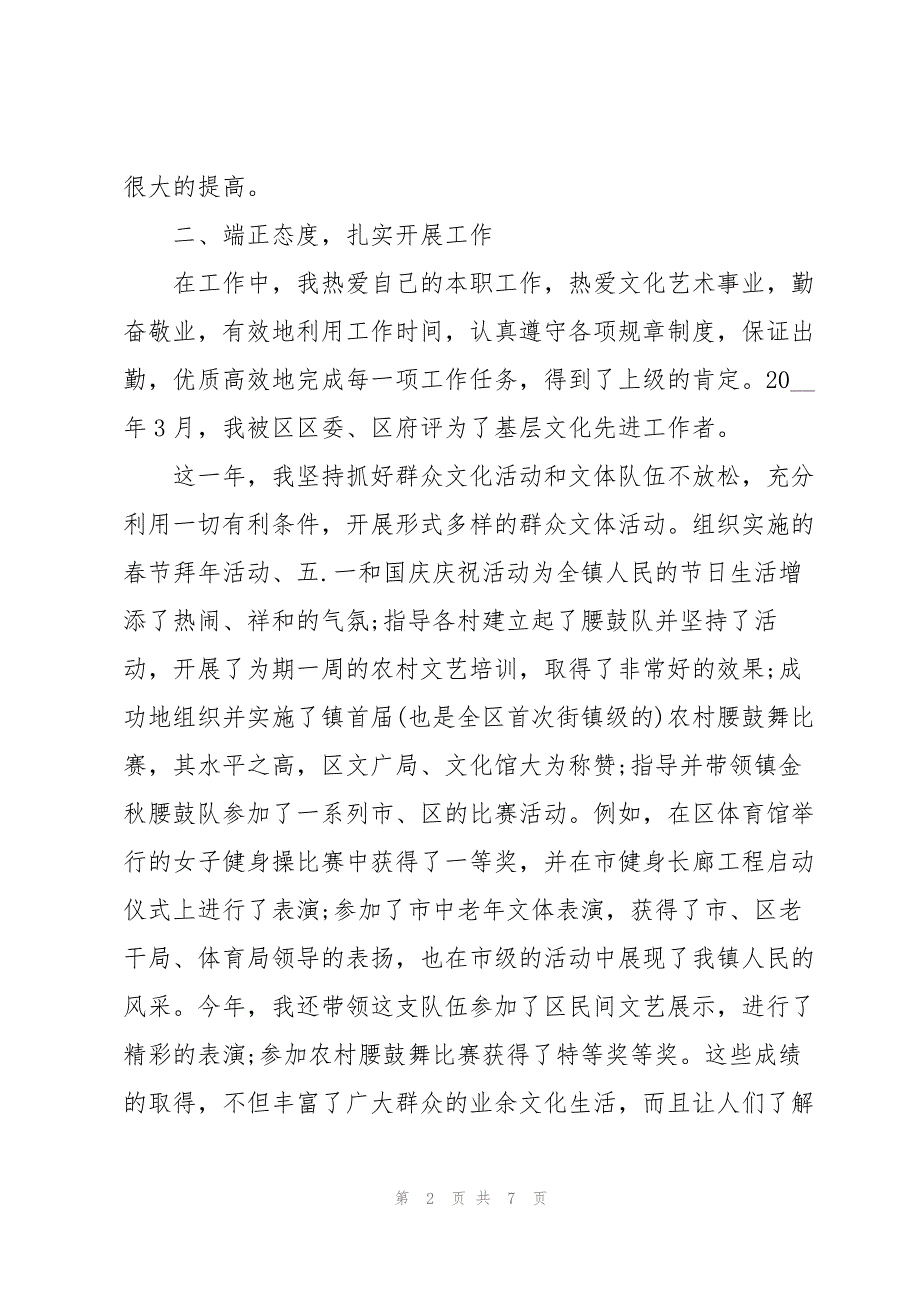 很大的提高。
二、端正态度，扎实开展工作
在工作中，我热爱自己的本职工作，热爱文化艺术事业，勤
奋敬业，有效地利用工作时间，认真遵守各项规章制度，保证出
勤，优质高效地完成每一项工作任务，得到了上级的肯定。20__
年 3 月，我被区区委、区府评为了基层文化先进工作者。
这一年，我坚持抓好群众文化活动和文体队伍不放松，充分
利用一切有利条件，开展形式多样的群众文体活动。组织实施的
春节拜年活动、五.一和国庆庆祝活动为全镇人民的节日生活增
添了热闹、祥和的气氛;指导各村建立起了腰鼓队并坚持了活
动，开展了为期一周的农村文艺培训，取得了非常好的效果;成
功地组织并实施了镇首届(也是全区首次街镇级的)农村腰鼓舞比
赛，其水平之高，区文广局、文化馆大为称赞;指导并带领镇金
秋腰鼓队参加了一系列市、区的比赛活动。例如，在区体育馆举
行的女子健身操比赛中获得了一等奖，并在市健身长廊工程启动
仪式上进行了表演;参加了市中老年文体表演，获得了市、区老
干局、体育局领导的表扬，也在市级的活动中展现了我镇人民的
风采。今年，我还带领这支队伍参加了区民间文艺展示，进行了
精彩的表演;参加农村腰鼓舞比赛获得了特等奖等奖。这些成绩
的取得，不但丰富了广大群众的业余文化生活，而且让人们了解
第 2 页 共 7 页